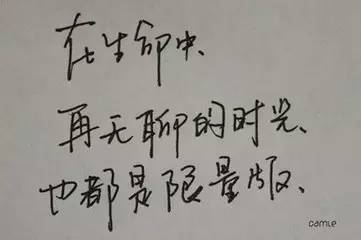 在生命中、
再无聊的时光、
也都是限量版、
camile